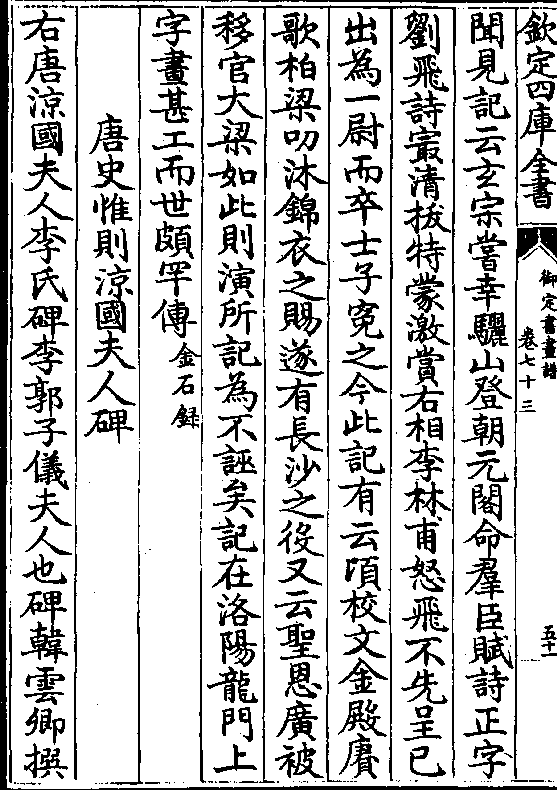 欽定四庫全書
御定書畫譜
卷七十三
五十一
聞見記云玄宗嘗幸驪山登朝元閣命羣臣賦詩正字
劉飛詩㝡清拔特蒙激賞右相李林甫怒飛不先呈已
出為一尉而卒士子寃之今此記有云頃校文金殿賡
歌柏梁叨沐錦衣之賜遂有長沙之役又云聖恩廣被
移官大梁如此則演所記為不誣矣記在洛陽龍門上
字畫甚工而世頗罕傳金石録
唐史惟則涼國夫人碑
右唐涼國夫人李氏碑李郭子儀夫人也碑韓雲卿撰